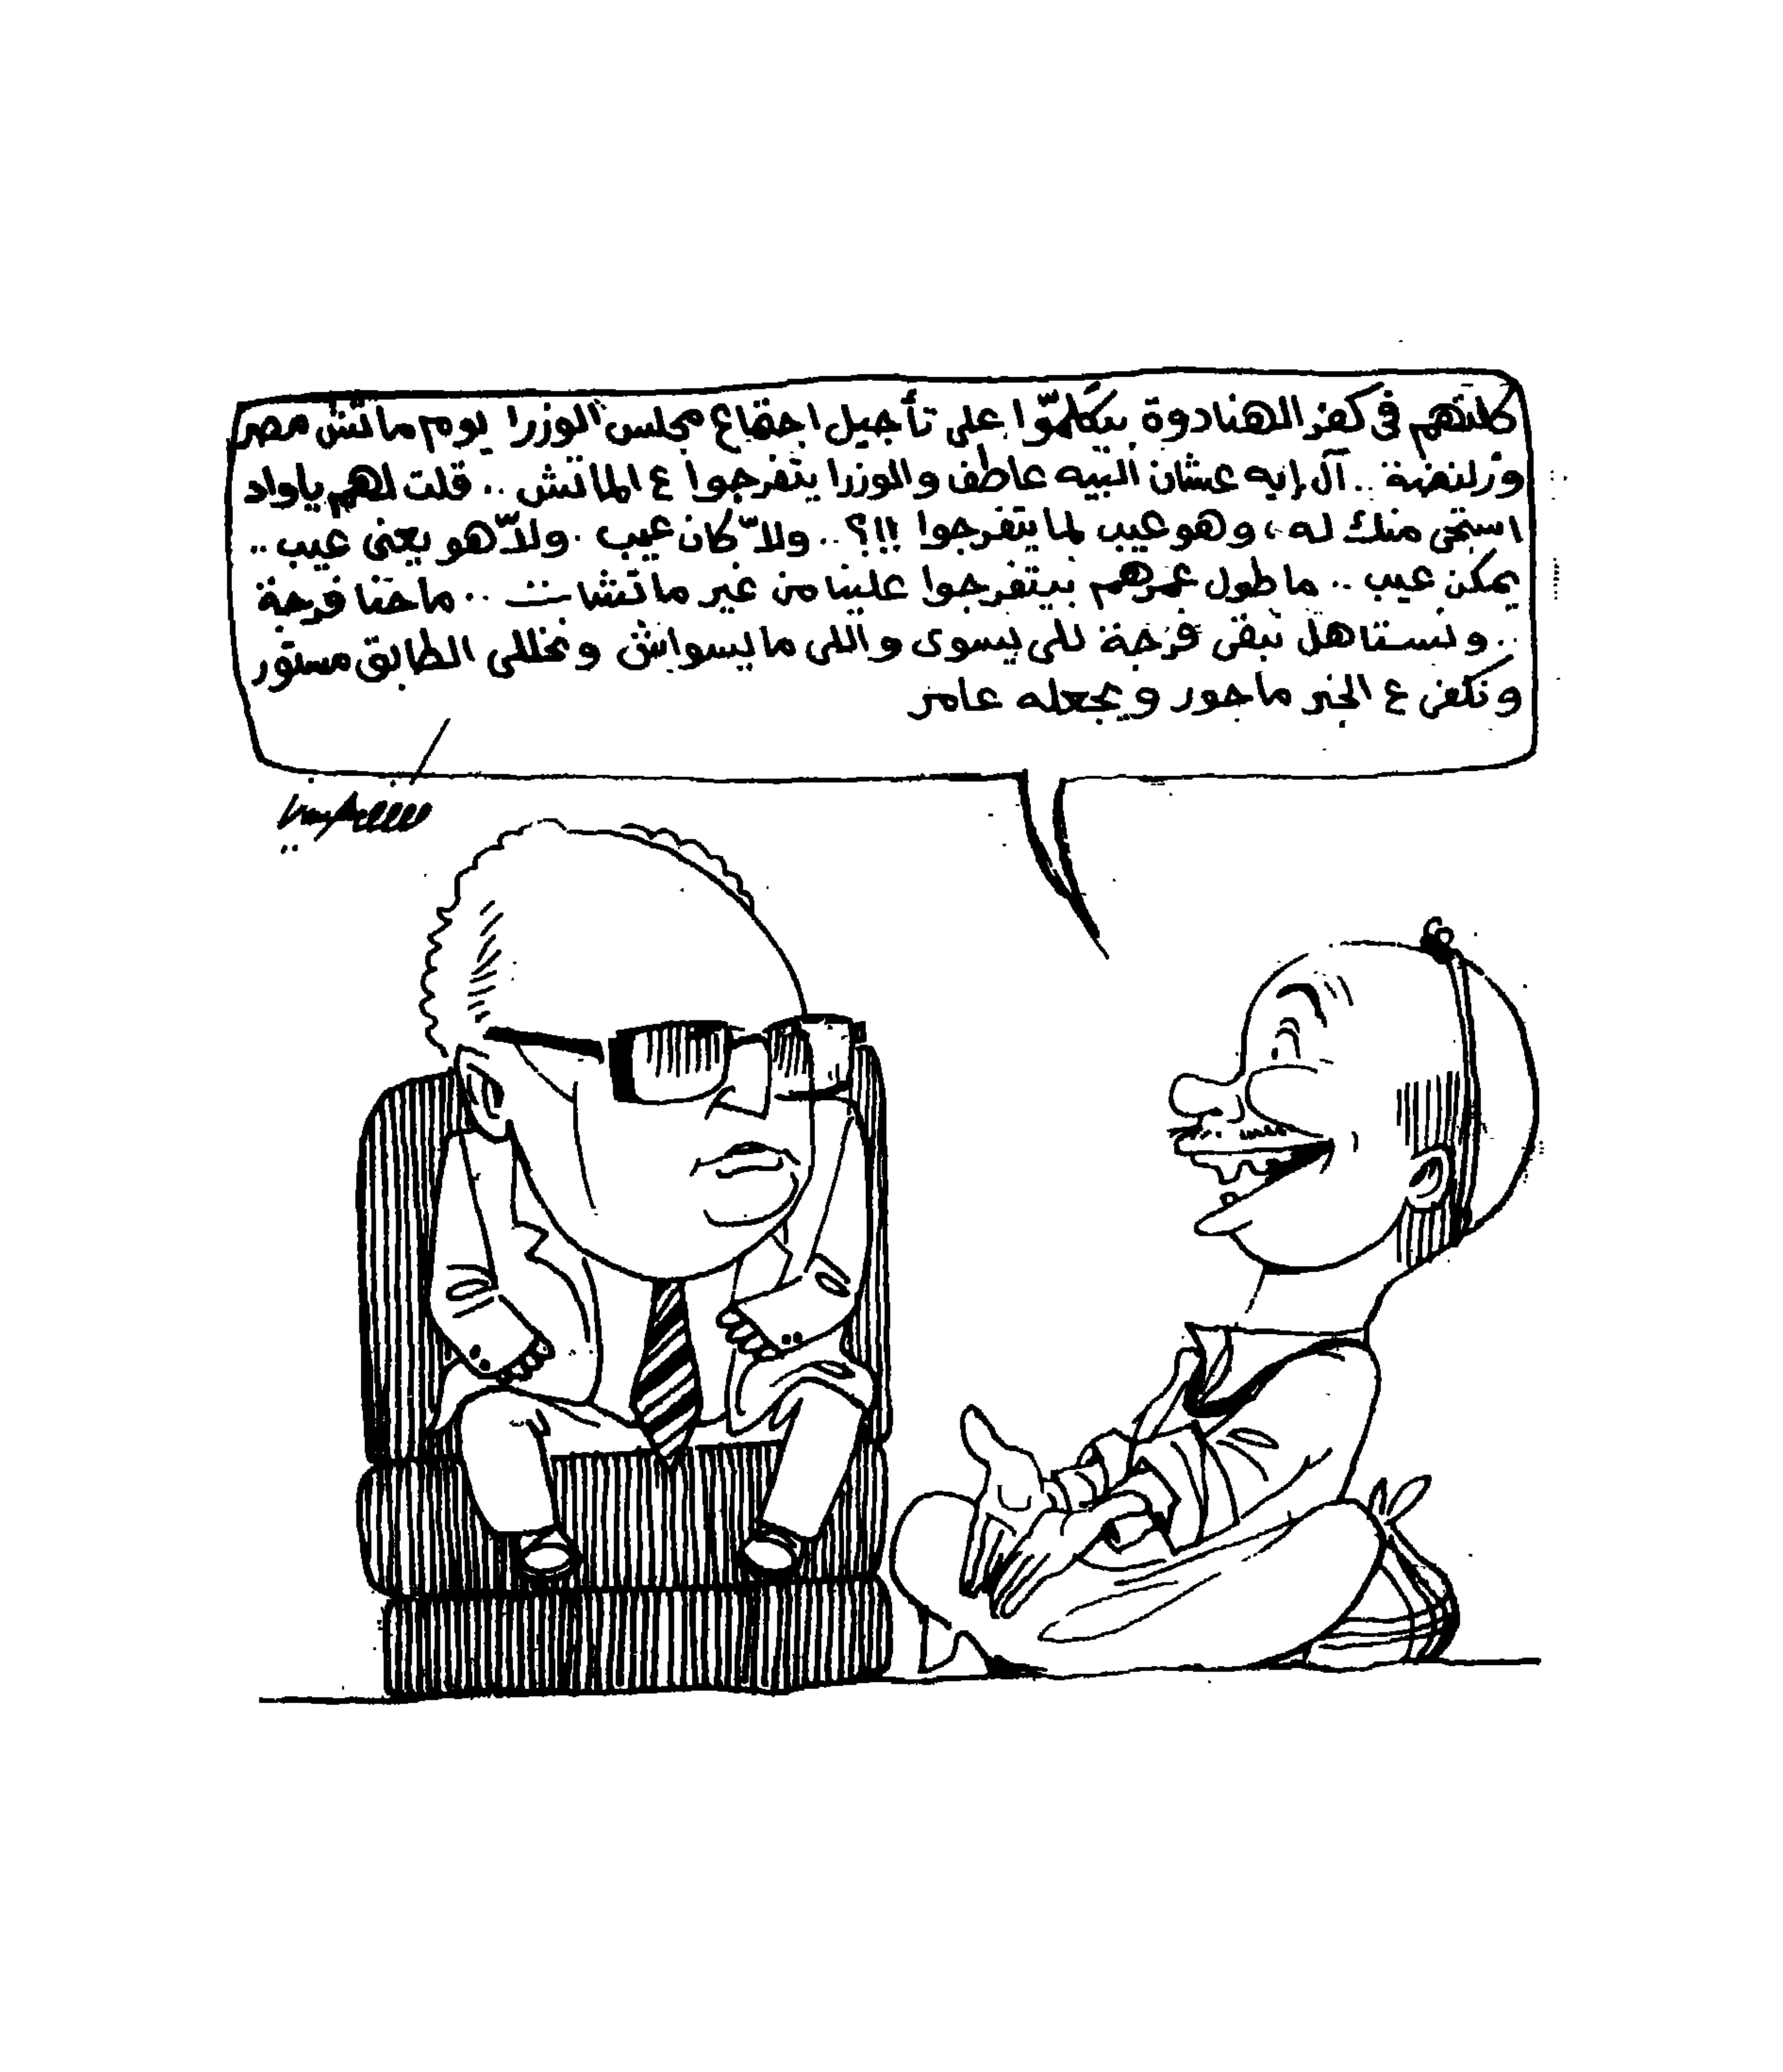 كلتهم فى كفر الهنادوة بيتكلموّا على تأجيل اجتماع مجلس الوزرا يوم ماتش مصر
وزلنضنة .. آل إيه عشان البيه عاطف والوزرا يتفرجوا ع الماتش .. قلت لهم ياواد
استحى منك له ، وهو عيب لما يتفرجوا !!؟ .. ولاّ كان عيب . ولاّ هو يعنى عيب ..
يمكن عيب .. ما طول عمرهم بيتفرجوا علينا من غير ماتشات .. ما حنا فرجة
.. ونستاهل نبقى فرجة للى يسوى واللى ما يسواش ونخللى الطابق مستور
ونكفى ع الخبر ماجور ويجعله عامر